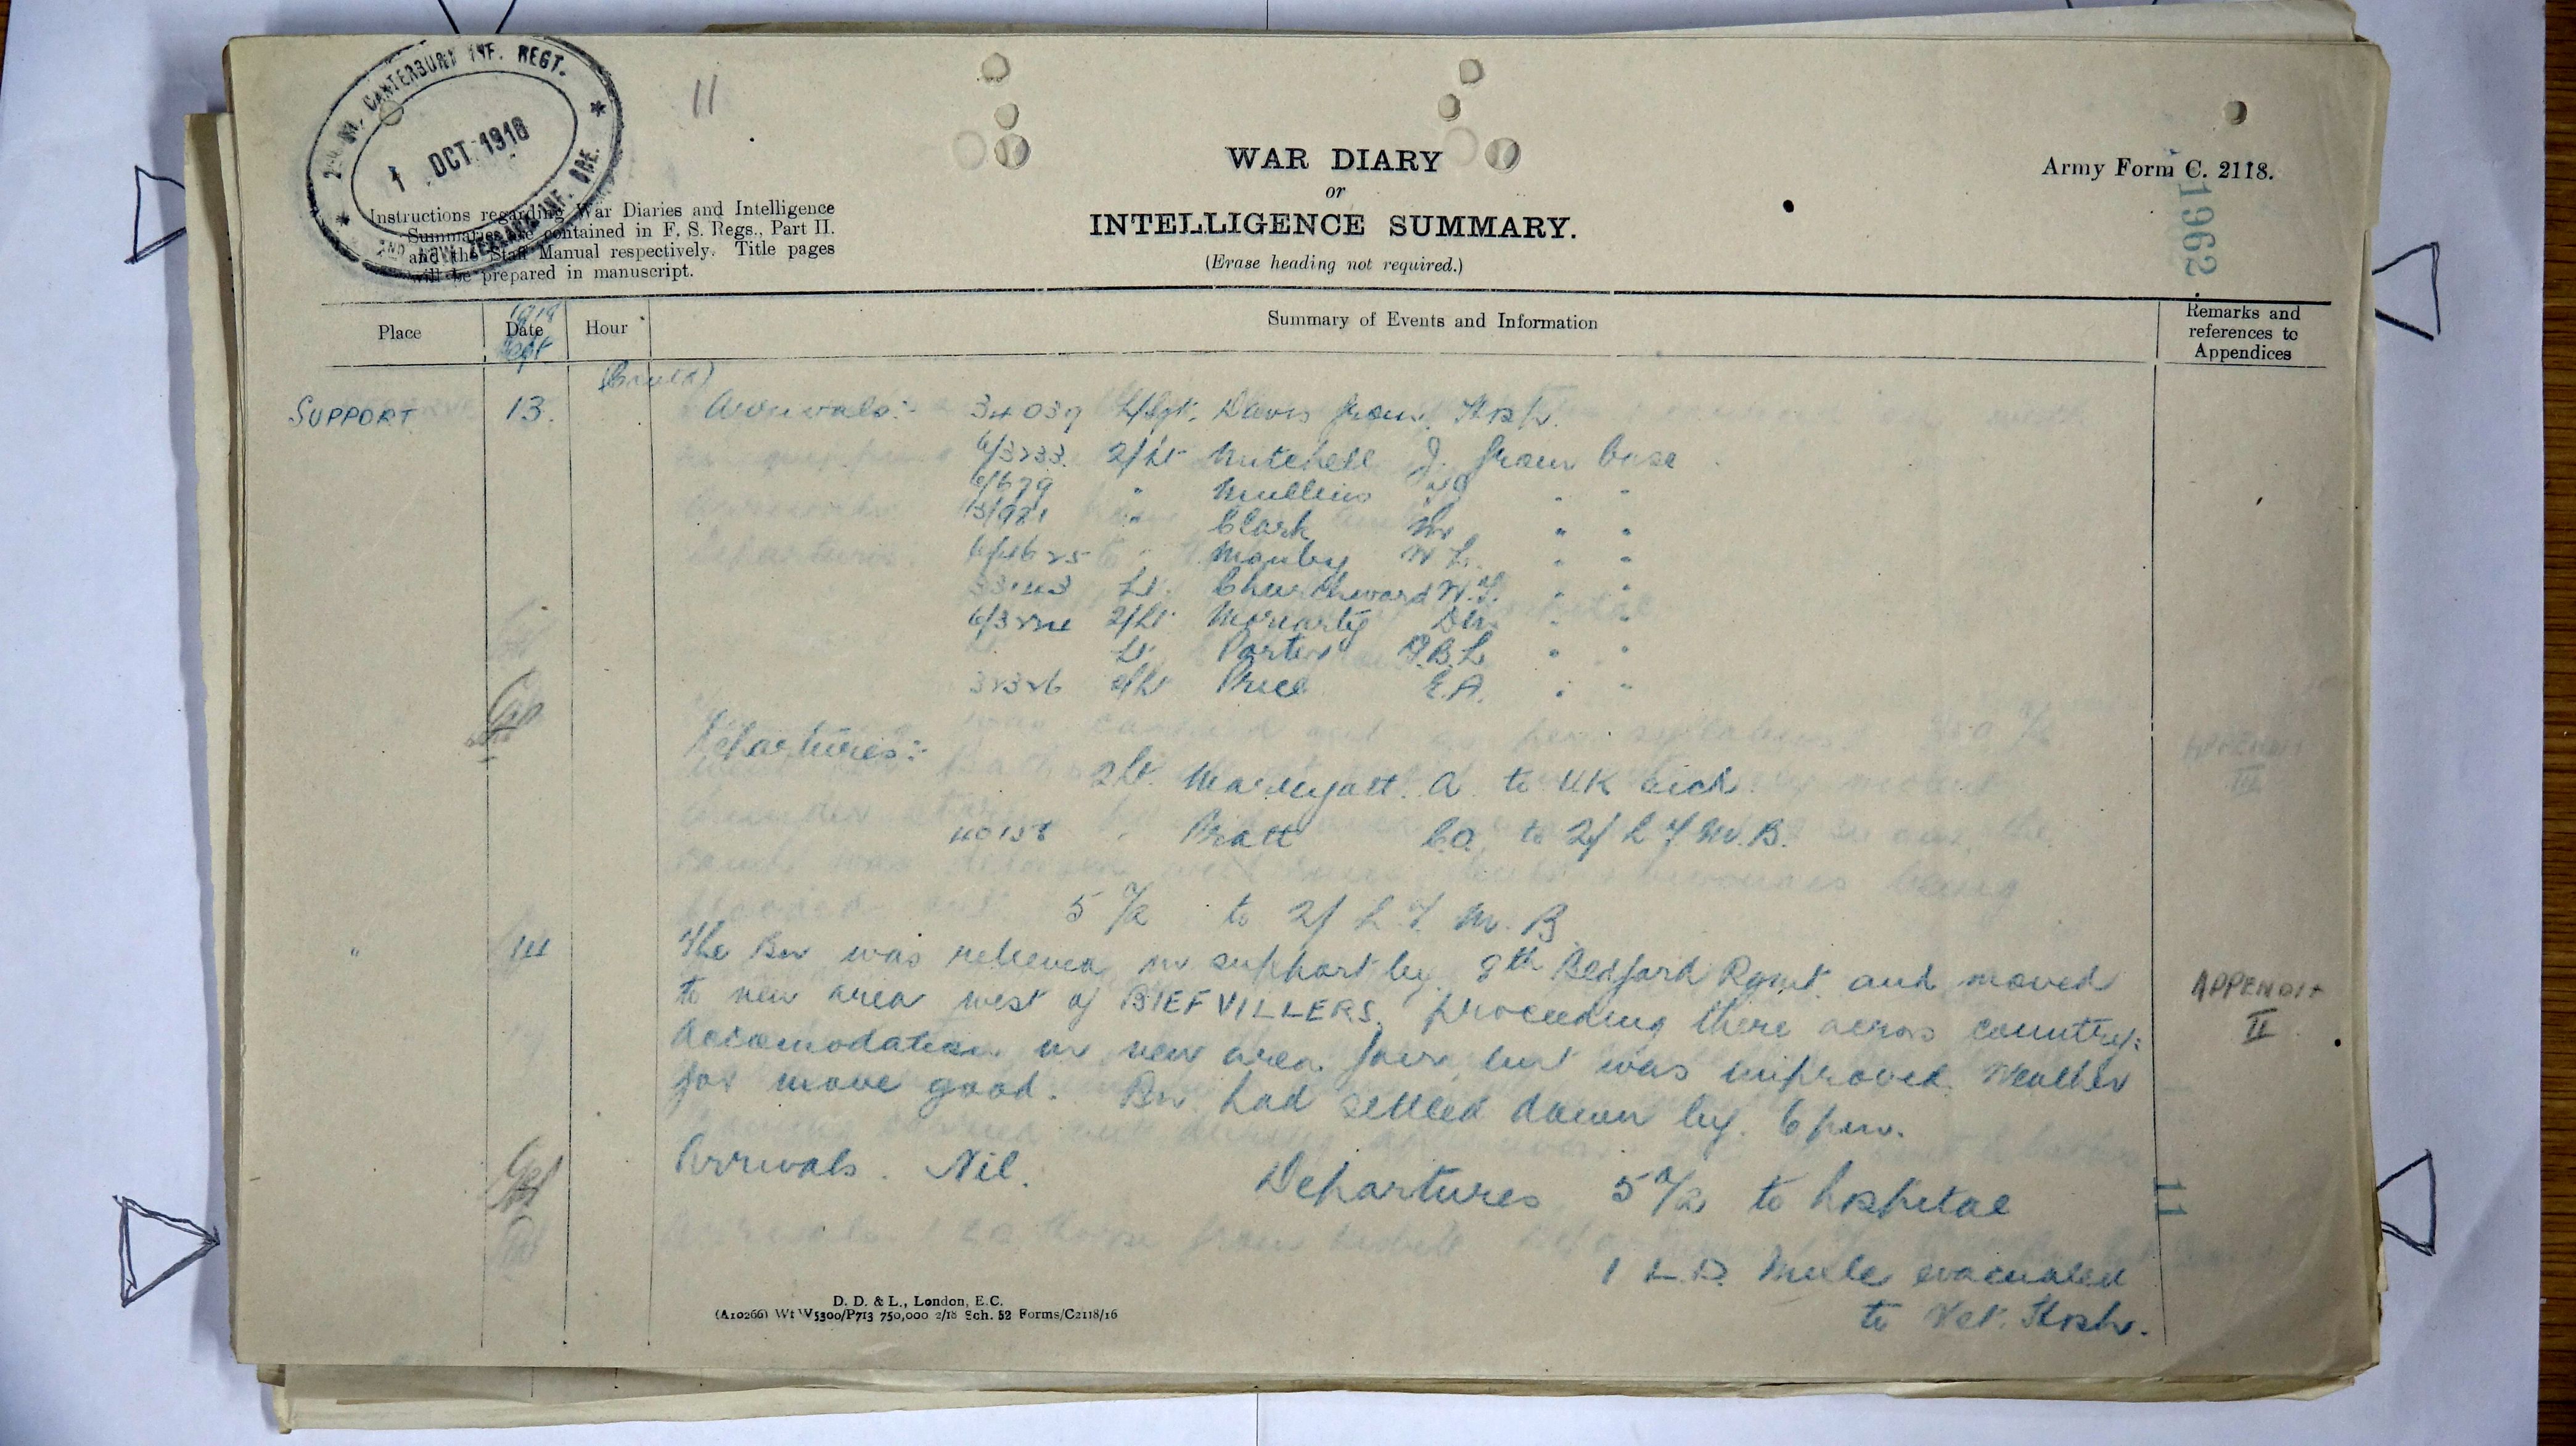 2nd Bn. CANTERBURY INF. REGT.
1 OCT 1918
2ND NEW ZEALAND INF. BDE.
11
WAR DIARY
or
INTELLIGENCE SUMMARY.
(Erase heading not required.)
Army Form C. 2118.
1962
Instructions regarding War Diaries and Intelligence
Summaries are contained in F. S. Regs., Part II.
and the Staff Manual respectively. Title pages
will be prepared in manuscript.
Place
1918
Date
Sept
Hour
Summary of Events and Information
Remarks and
references to
Appendices
(Contd)
SUPPORT 13. Arrivals:- 34039 L/Sgt. Davis from Hosp.
6/3233 2/Lt Mitchell J. from base
6/679 " Mullins " "
13/981 " Clark " "
" Manby W L. " "
33143 Lt. Churchward W.F. " "
2/Lt Moriarty Dln " "
Lt. Porter B.L " "
32326 2/Lt Price E.A. " "
Departures:-
2Lt. Marryatt. A. to UK sick
40158 " Pratt C.O. to 2/ L T M. B.
5 O/R to 2/ L. T. M. B
" 14 The Bn was relieved in support by 8th Bedford Rgmt and moved
to new area west of BIEFVILLERS. proceeding there across country:
accomodation in new area fair but was improved. Weather
for move good. Bn. had settled down by 6 pm.
APPENDIX
II
Arrivals. Nil. Departures 5 O/R to hospital
1 L.D. Mule evacuated
to Vet. Hosp.
11
D. D. & L., London, E.C.
(A10266) Wt W5300/P713 750,000 2/18 Sch. 52 Forms/C2118/16